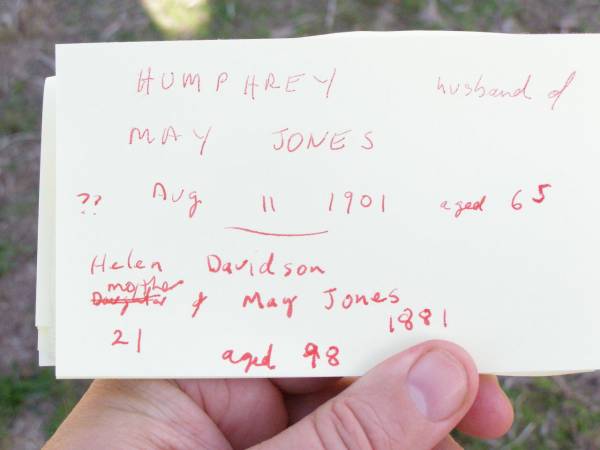 HUMPHREY husband of
MAY JONES
?? Aug 11 1901 aged 65
Helen Davidson
mother
Daughter of May Jones
21 1881
aged 98